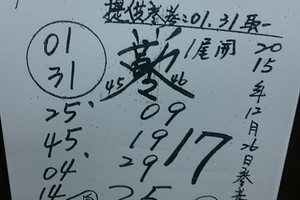 提供參考:01.31取一
01
31
45 46
1尾開
25 09
45 19
04 29
14
17
2015年12月26日參考